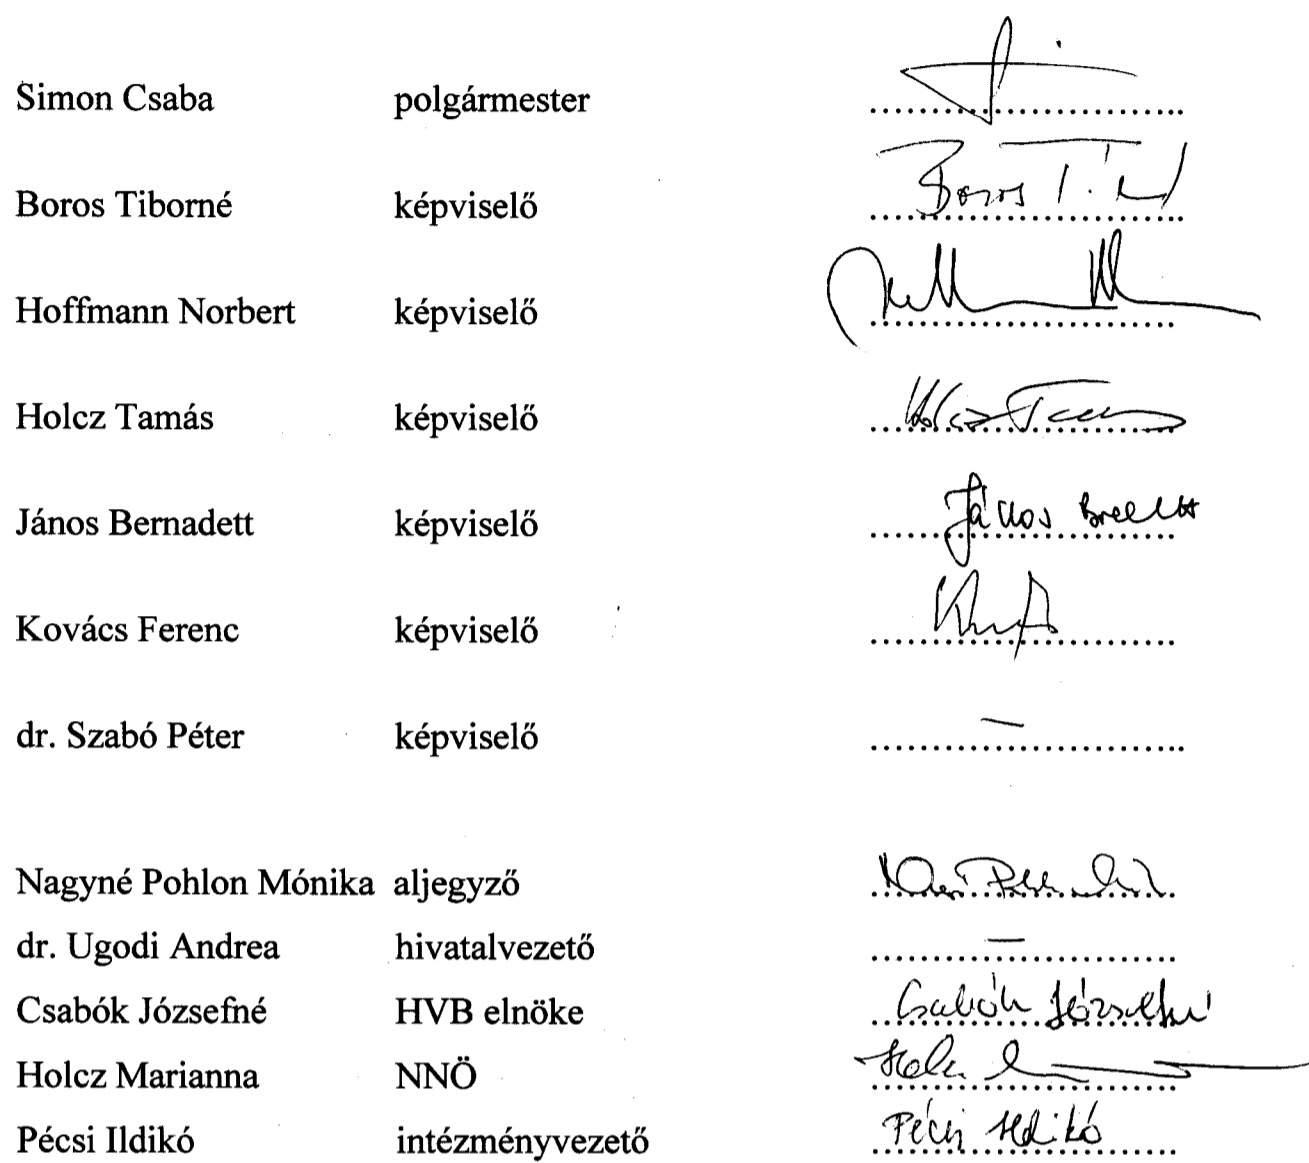 Simon Csaba polgármester ..............................
Boros Tiborné képviselő Boros T.né
Hoffmann Norbert képviselő ..............................
Holcz Tamás képviselő Holcz Tamás
János Bernadett képviselő János Bernadett
Kovács Ferenc képviselő ..............................
dr. Szabó Péter képviselő –
Nagyné Pohlon Mónika aljegyző ..............................
dr. Ugodi Andrea hivatalvezető –
Csabók Józsefné HVB elnöke Csabók Józsefné
Holcz Marianna NNÖ ..............................
Pécsi Ildikó intézményvezető Pécsi Ildikó